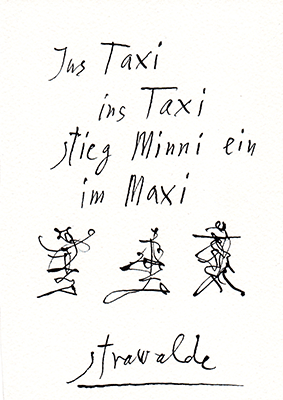 Ins Taxi
ins Taxi
stieg Minni ein
im Maxi
strawalde